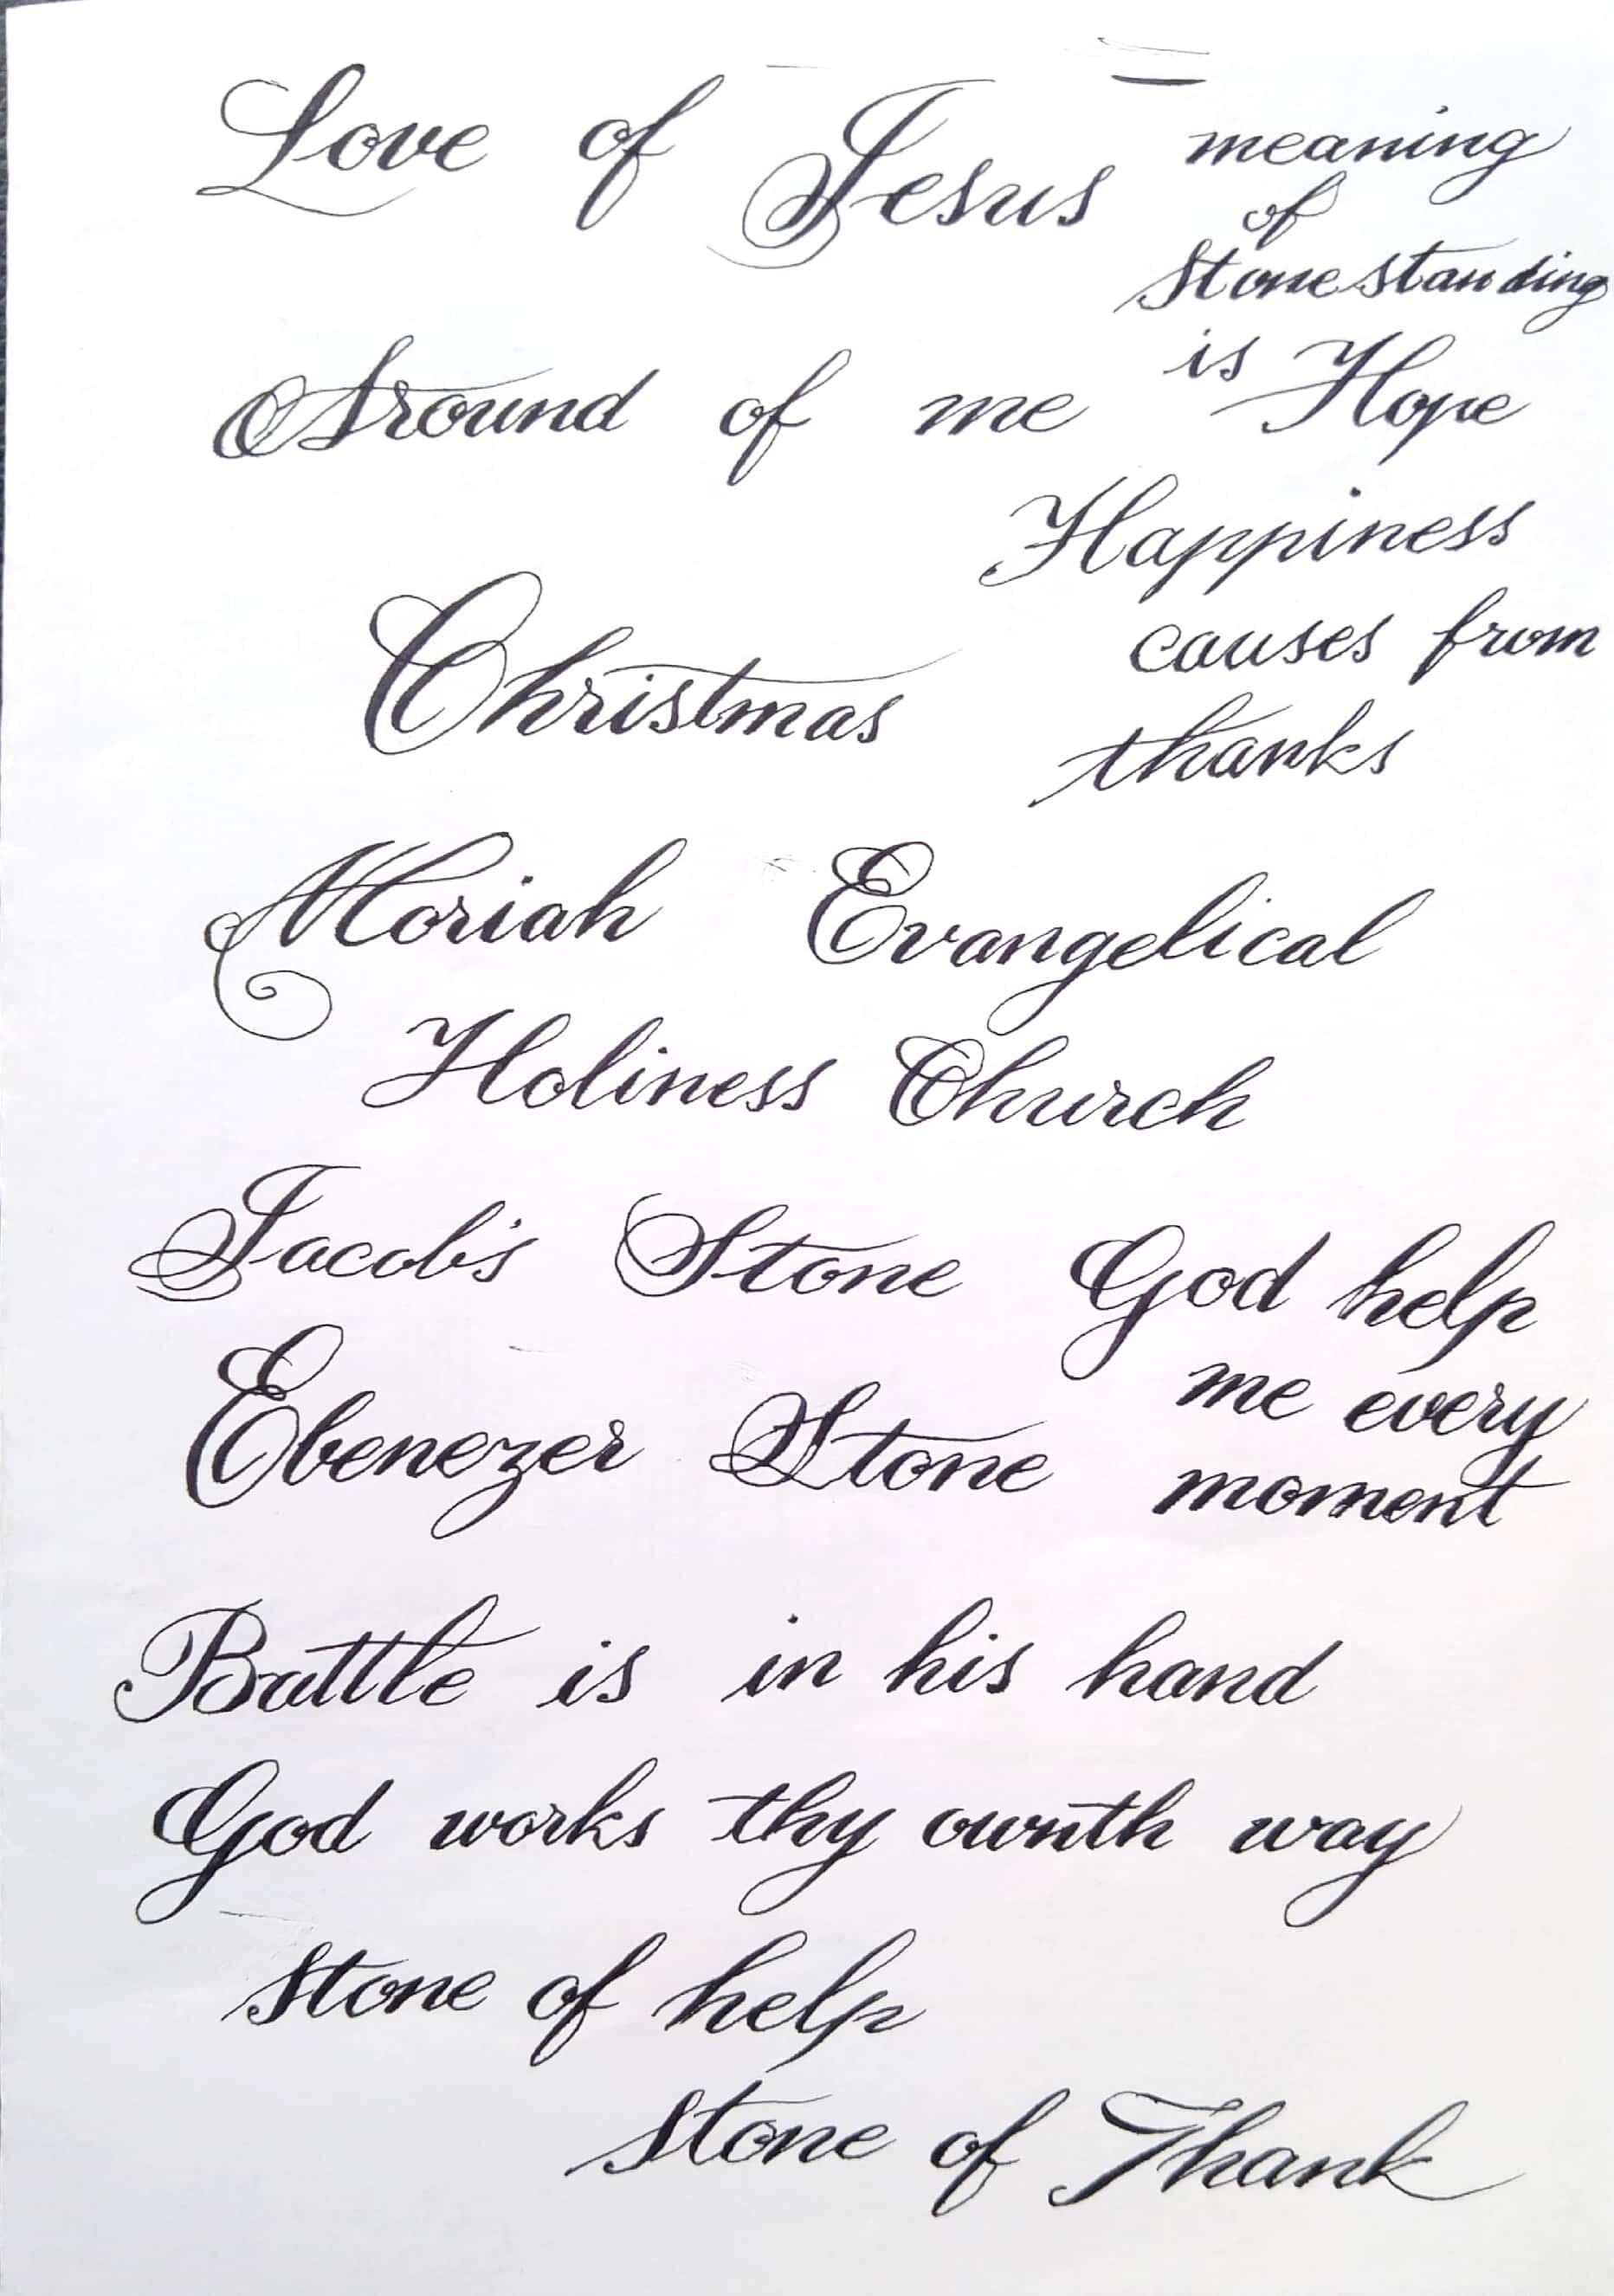 Love of Jesus
meaning
of
Stone standing
is Hope
Around of me
Happiness
causes from
thanks
Christmas
Moriah Evangelical
Holiness Church
Jacob's Stone
God help
me every
moment
Ebenezer Stone
Battle is in his hand
God works thy ownth way
stone of help
stone of Thank